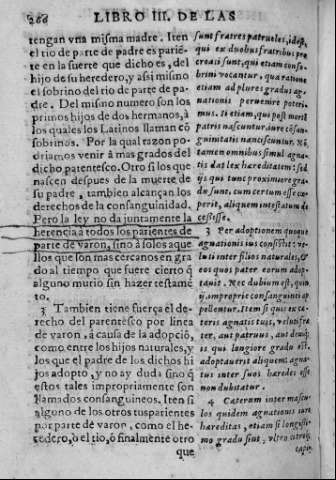 266 LIBRO III. DE LAS
tengan vna misma madre. Iten
el tio de parte de padre es pariē-
te en la suerte que dicho es, del
hijo de su heredero, y assi mismo
el sobrino del tio de parte de pa-
dre. Del mismo numero son los
primos hijos de dos hermanos, à
los quales los Latinos llaman cō
sobrinos. Por la qual razon po-
driamos venir à mas grados del
dicho parentesco. Otro si los que
nascen despues de la muerte de
su padre, tambien alcançan los
derechos de la consanguinidad.
Pero la ley no da juntamente la
herencia à todos los parientes de
parte de varon, sino à solos aque
llos que son mas cercanos en gra
do al tiempo que fuere cierto q̄
alguno murio sin hazer testamē
to.
3 Tambien tiene fuerça el de-
recho del parentesco por linea
de varon, à causa de la adopciō,
como entre los hijos naturales, y
los que el padre de los dichos hi
jos adopto, y no ay duda sino q̄
estos tales impropriamente son
llamados consanguineos. Iten si
alguno de los otros tus parientes
por parte de varon, como el he-
cedero, ò el tio, ò finalmente otro
que
sunt fratres patrueles, id est,
qui ex duobus fratribus pro
creati sunt, qui etiam conso-
brini vocantur, qua ratione
etiam ad plures gradus ag-
nationis peruenire poteri-
mus. Ii etiam, qui post mortē
patris nascuntur iura cōsan-
guinitatis nanciscuntur. Nō
tamen omnibus simul agna-
tis dat lex hæreditatem: sed
ijs qui tunc proximiore gra-
du sunt, cum certum esse cœ-
perit, aliquem intestatum de
cessisse.
3 Per adoptionem quoque
agnationis ius consistit: ve-
luti inter filios naturales, &
eos quos pater eorum adop-
tauit. Nec dubium est, quin
ij, improprie consanguinei ap
pellentur. Item si quis ex cæ-
teris agnatis tuis, veluti fra
ter, aut patruus, aut deniq;
is qui longiore gradu est,
adoptauerit aliquem: agna-
tus inter suos hæredes esse
non dubitatur.
4 Cæterum inter mascu
los quidem agnationis iure
hæreditas, etiam si longissi-
mo gradu sint, vltro citroq;
capi-